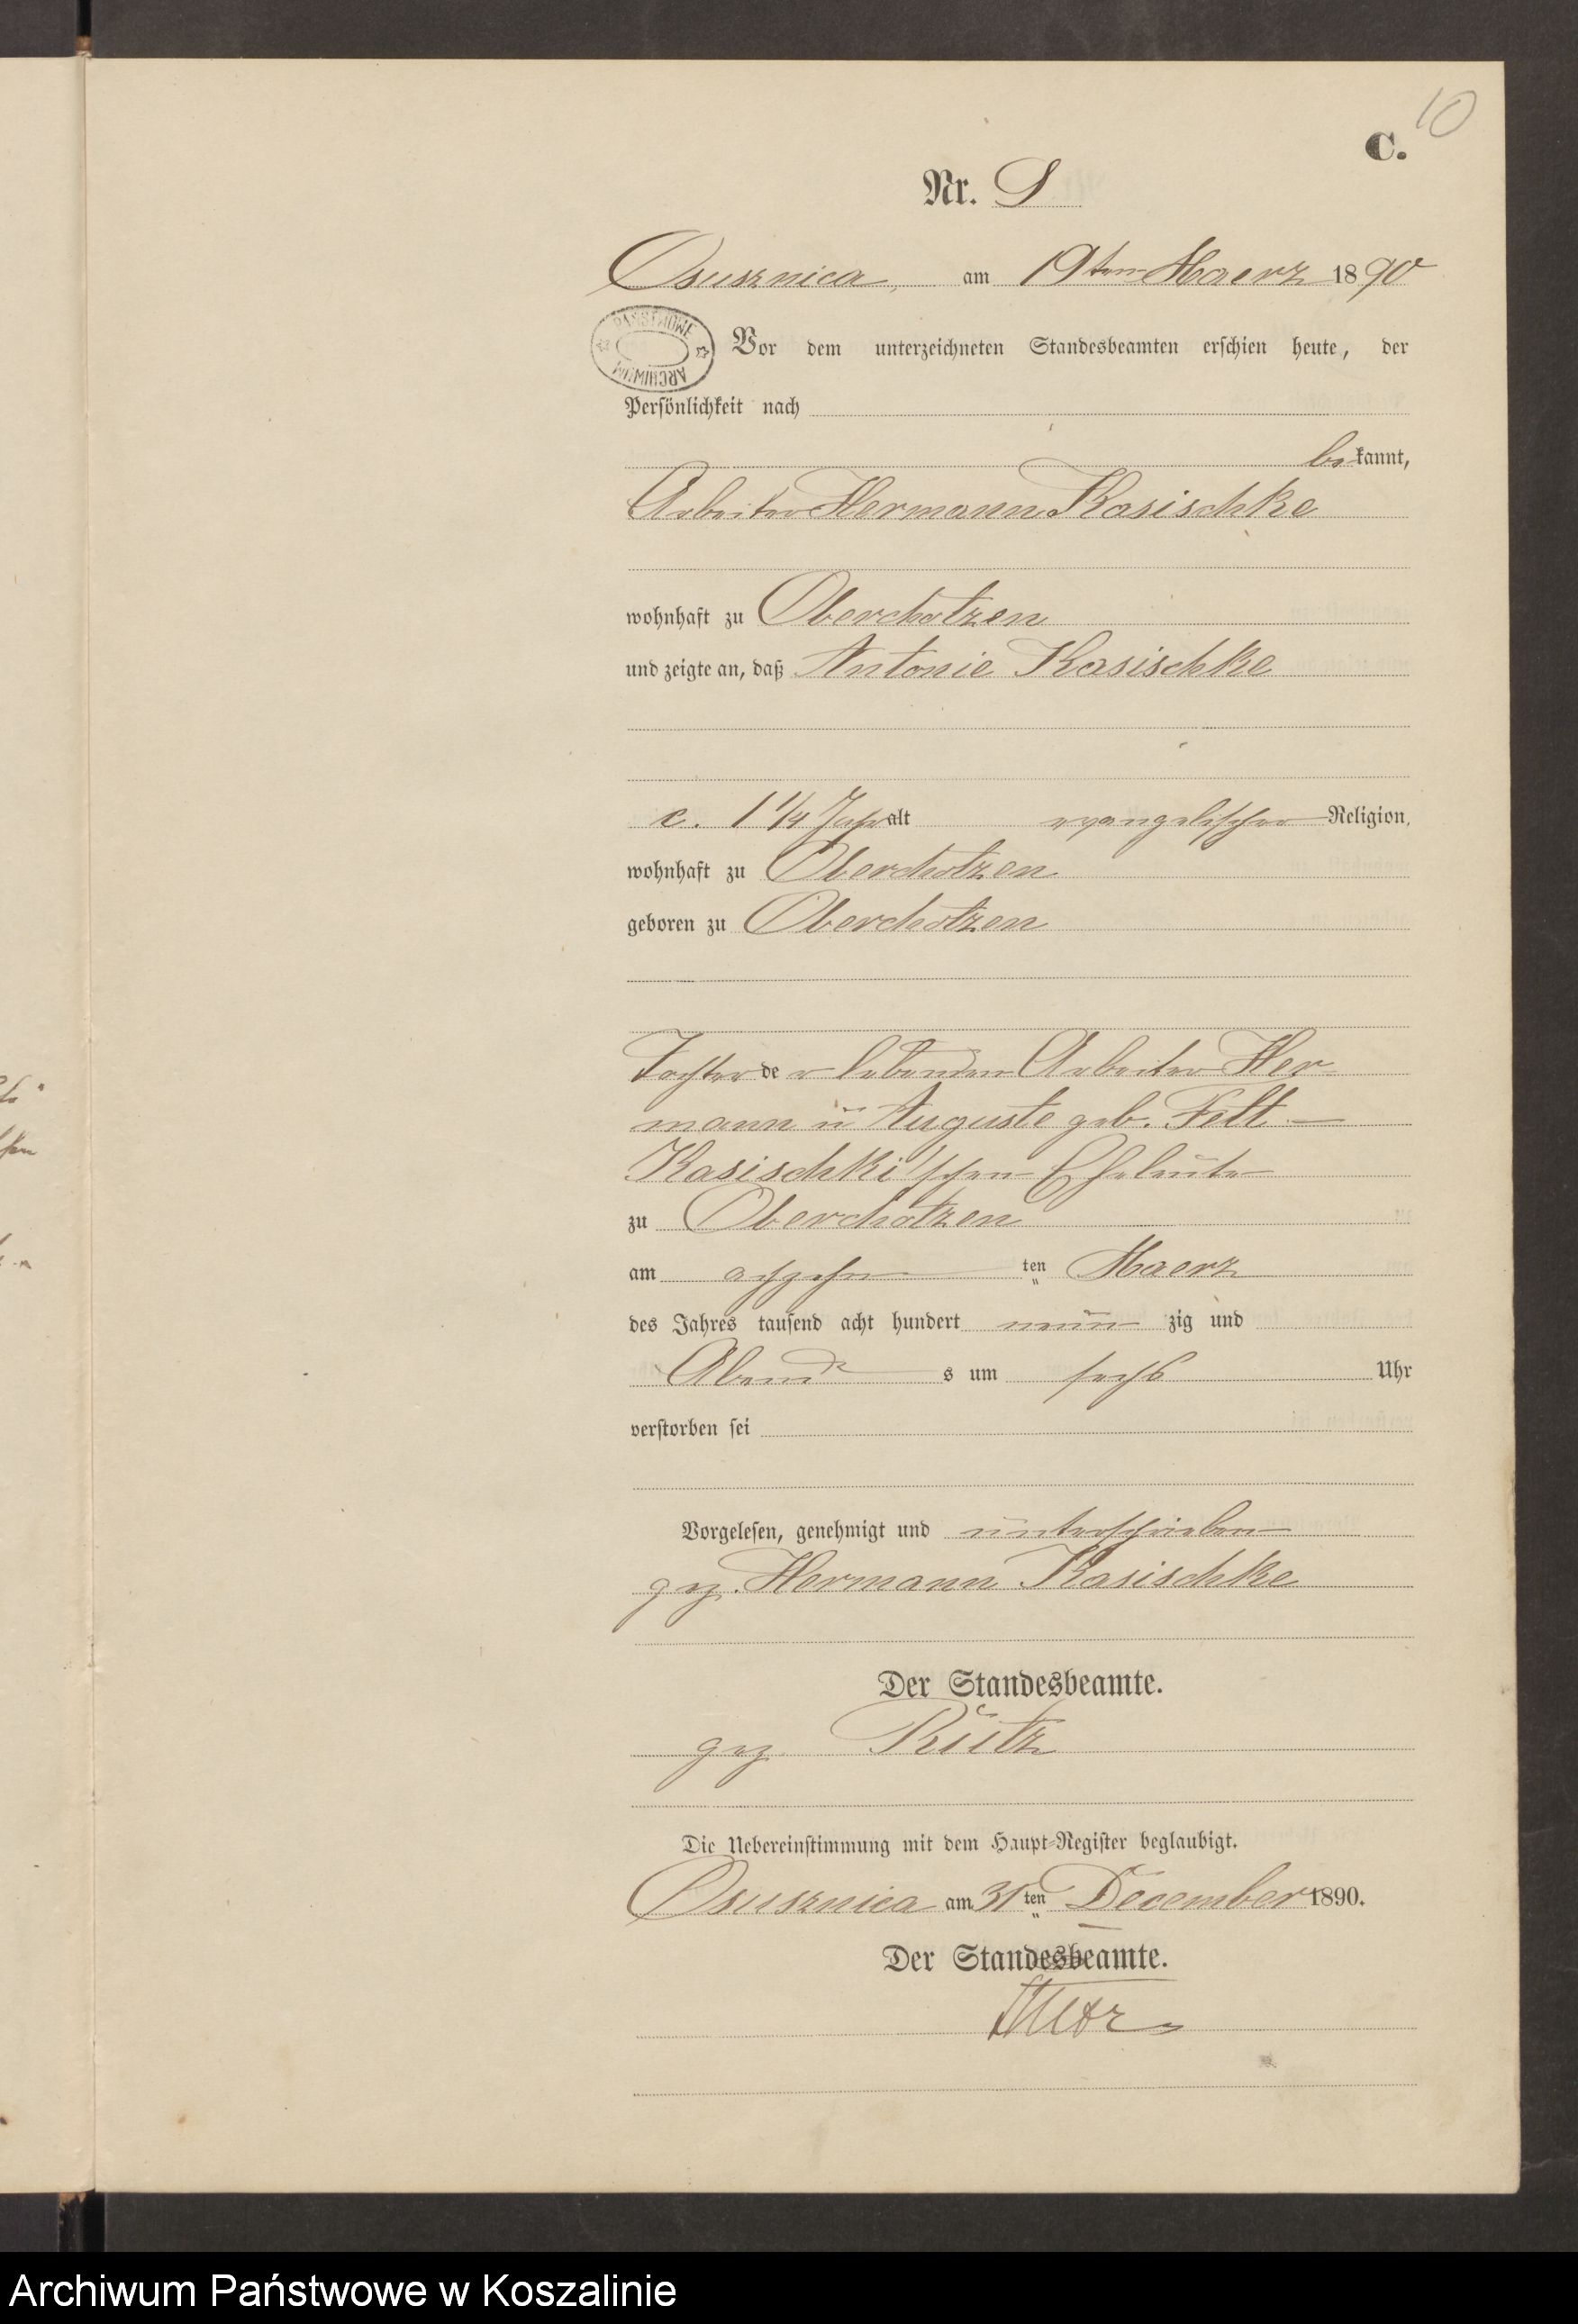 10
C.
Nr. 8
Osusznica, am 19ten Maerz 1890
PAŃSTWOWE ARCHIWUM
Vor dem unterzeichneten Standesbeamten erschien heute, der
Persönlichkeit nach
bekannt,
Arbeiter Hermann Kasischke
wohnhaft zu Oberchotzen
und zeigte an, daß Antonie Kasischke
c. 1 1/4 Jahr alt evangelischer Religion,
wohnhaft zu Oberchotzen
geboren zu Oberchotzen
Tochter der lebenden Arbeiter Her-
mann ū Auguste geb. Felt -
Kasischki'schen Eheleute
zu Oberchotzen
am achzehn ten Maerz
des Jahres tausend acht hundert neun zig und
Abend s um sechs Uhr
verstorben sei
Vorgelesen, genehmigt und unterschrieben
gez. Hermann Kasischke
Der Standesbeamte.
gez. Rütz
Die Uebereinstimmung mit dem Haupt-Register beglaubigt.
Osusznica am 31ten December 1890.
Der Standesbeamte.
Archiwum Państwowe w Koszalinie